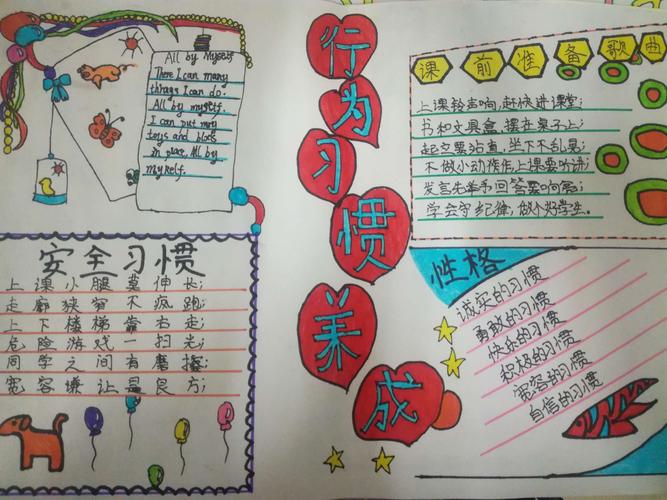 All by Myself
There I can many
things I can do.
All by myself.
I can put my
toys and blocks
in place. All by
myself.
安全习惯
上课小腿莫伸长;
走廊狭窄不疯跑;
上下楼梯靠右走;
危险游戏一扫光;
同学之间有磨擦;
宽容谦让是良方;
行为习惯养成
课前准备歌曲
上课铃声响,赶快进课堂;
书和文具盒,摆在桌子上;
起立要站直,坐下不乱晃;
不做小动作,上课要听讲;
发言先举手,回答要响亮;
学会守纪律,做个好学生.
性格
诚实的习惯
勇敢的习惯
快乐的习惯
积极的习惯
宽容的习惯
自信的习惯